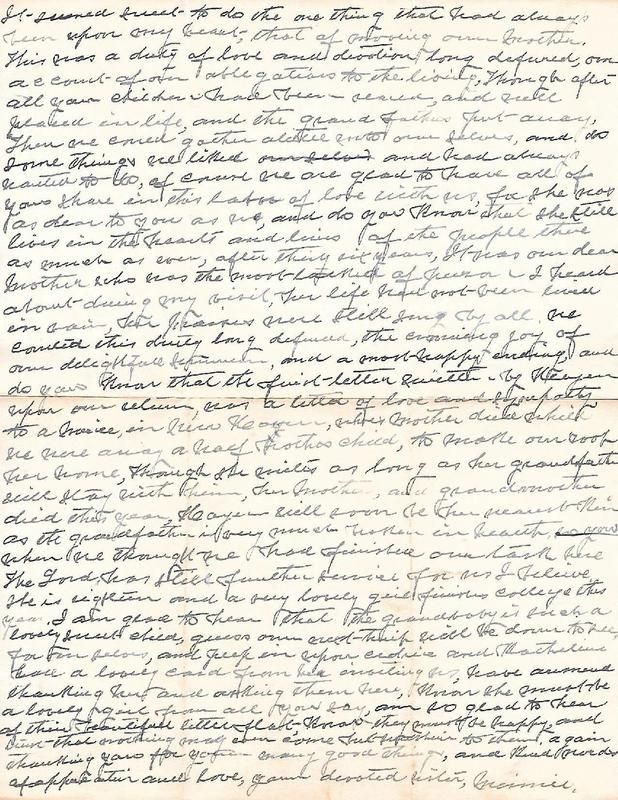 It seemed sweet to do the one thing that had always
been upon my heart, that of moving our Mother.
This was a duty of love and devotion long defered, on
account of our obligations to the living, Though after
all your children had been reared, and well
placed in life, and the grand father put away,
Then we could gather a little unto our selves, and do
some things we liked ourselves and had always
wanted to do, of course we are glad to have all of
you share in this labor of love with us, for she was
as dear to you as us, and do you know that she still
lives in the hearts and lives of the people there
as much as ever, after thirty six years, It was our dear
Mother who was the most talked of person I heard
about during my visit, her life had not been lived
in vain, her praises were still sung by all. We
counted this duty long defered, the crowning joy of
our delightful summer, and a most happy ending, and
do you know that the first letter written by
upon our return, was a letter of love and sympathy
to a Niece, in New Haven, whose mother died while
we were away a half Brothers child, to make our roof
her home, Though she writes as long as her grandfather
will stay with them, her Mother, and grandmother
died this year, will soon be her nearest kin
as the grandfather is very much broken in health, so you
when we thought we had finished our task here
The Lord has still further service for us I believe.
She is eighteen and a very lovely girl finishes college this
year. I am glad to hear that the grandbaby is such a
lovely sweet child, guess our will be down to see,
for our selves, and peep in upon and
have a lovely card from her inviting us, have answered
thanking her and asking them here, know she must be
a lovely girl from all you say, am so glad to hear
of their beautiful little flat know they must be happy, and
trust that nothing may ever come but to them, again
thanking you for your many good things, and kind words
of appreciation and love, your devoted sister, Minnie.